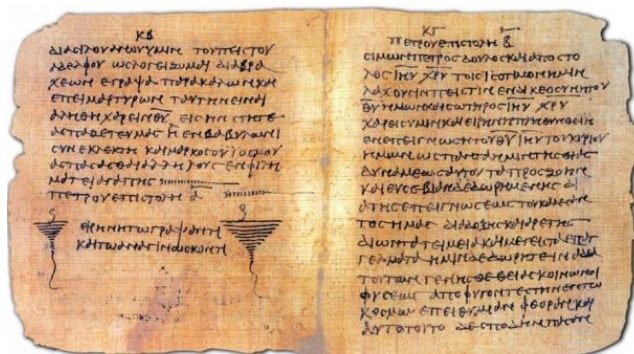 ΚΒ
ΔΙΑ ϹΙΛΟΥΑΝΟΥ ΥΜΙΝ ΤΟΥ ΠΙϹΤΟΥ
ΑΔΕΛΦΟΥ ΩϹ ΛΟΓΙΖΟΜΑΙ ΔΙΑ ΒΡΑ
ΧΕΩΝ ΕΓΡΑΨΑ ΠΑΡΑΚΑΛΩΝ ΚΑΙ
ΕΠΕΙΜΑΡΤΥΡΩΝ ΤΑΥΤΗΝ ΕΙΝΑΙ
ΑΛΗΘΗ ΧΑΡΕΙΝ ΘΥ ΕΙϹ ΗΝ ϹΤΗΤΕ
ΑϹΠΑΖΕΤΕ ΥΜΑϹ Η ΕΝ ΒΑΒΥΛΩΝΙ
ϹΥΝΕΚΛΕΚΤΗ ΚΑΙ ΜΑΡΚΟϹ Ο ΥΙΟϹ ΜΟΥ
ΑϹΠΑϹΑϹΘΑΙ ΑΛΛΗΛΟΥϹ ΕΝ ΦΙΛΗ
ΜΑΤΕΙ ΑΓΑΠΗϹ
ΠΕΤΡΟΥ ΕΠΙϹΤΟΛΗ Α
ΕΙΡΗΝΗ ΤΩ ΓΡΑΨΑΝΤΙ
ΚΑΙ ΤΩ ΑΝΑΓΙΝΩϹΚΟΝΤΙ
ΚΓ
ΠΕΤΡΟΥ ΕΠΙϹΤΟΛΗ Β
ϹΙΜΩΝ ΠΕΤΡΟϹ ΔΟΥΛΟϹ ΚΑΙ ΑΠΟϹΤΟ
ΛΟϹ ΙΗΥ ΧΡΥ ΤΟΙϹ ΙϹΟΤΙΜΟΝ ΗΜΙΝ
ΛΑΧΟΥϹΙΝ ΠΙϹΤΙΝ ΕΝ ΔΙΚΕΟϹΥΝΗ ΤΟΥ
ΘΥ ΗΜΩΝ ΚΑΙ ϹΩΤΗΡΟϹ ΙΗΥ ΧΡΥ
ΧΑΡΕΙϹ ΥΜΙΝ ΚΑΙ ΕΙΡΗΝΗ ΠΛΗΘΥΝΘΕΙΗ
ΕΝ ΕΠΕΙΓΝΩϹΗ ΤΟΥ ΘΥ ΙΗΥ ΤΟΥ ΚΥΡΙΟΥ
ΗΜΩΝ ΩϹ ΠΑΝΤΑ ΗΜΙΝ ΤΗϹ ΘΗΑϹ
ΔΥΝΑΜΕΩϹ ΑΥΤΟΥ ΤΑ ΠΡΟϹ ΖΩΗΝ
ΚΑΙ ΕΥϹΕΒΙΑΝ ΔΕΔΩΡΗΜΕΝΗϹ ΔΙ
Α ΤΗϹ ΕΠΕΙΓΝΩϹΕΩϹ ΤΟΥ ΚΑΛΕϹΑΝ
ΤΟϹ ΗΜΑϹ ΔΙΑ ΔΟΞΗϹ ΚΑΙ ΑΡΕΤΗϹ
ΔΙ ΩΝ ΤΑ ΤΕΙΜΕΙΑ ΚΑΙ ΜΕΓΕΙϹΤΑ ΕΠΑΓ
ΓΕΛΜΑΤΑ ΗΜΙΝ ΔΕΔΩΡΗΤΕ ΙΝΑ ΔΙΑ
ΤΟΥΤΩΝ ΓΕΝΗϹΘΕ ΘΕΙΑϹ ΚΟΙΝΩΝΟΙ
ΦΥϹΕΩϹ ΑΠΟΦΥΓΟΝΤΕϹ ΤΗΝ ΕΝ ΤΩ
ΚΟϹΜΩ ΕΠΕΙΘΥΜΙΑΝ ΦΘΟΡΑΝ ΚΑΙ
ΑΥΤΟ ΤΟΥΤΟ ΔΕ ϹΠΟΥΔΗΝ ΠΑϹΑΝ